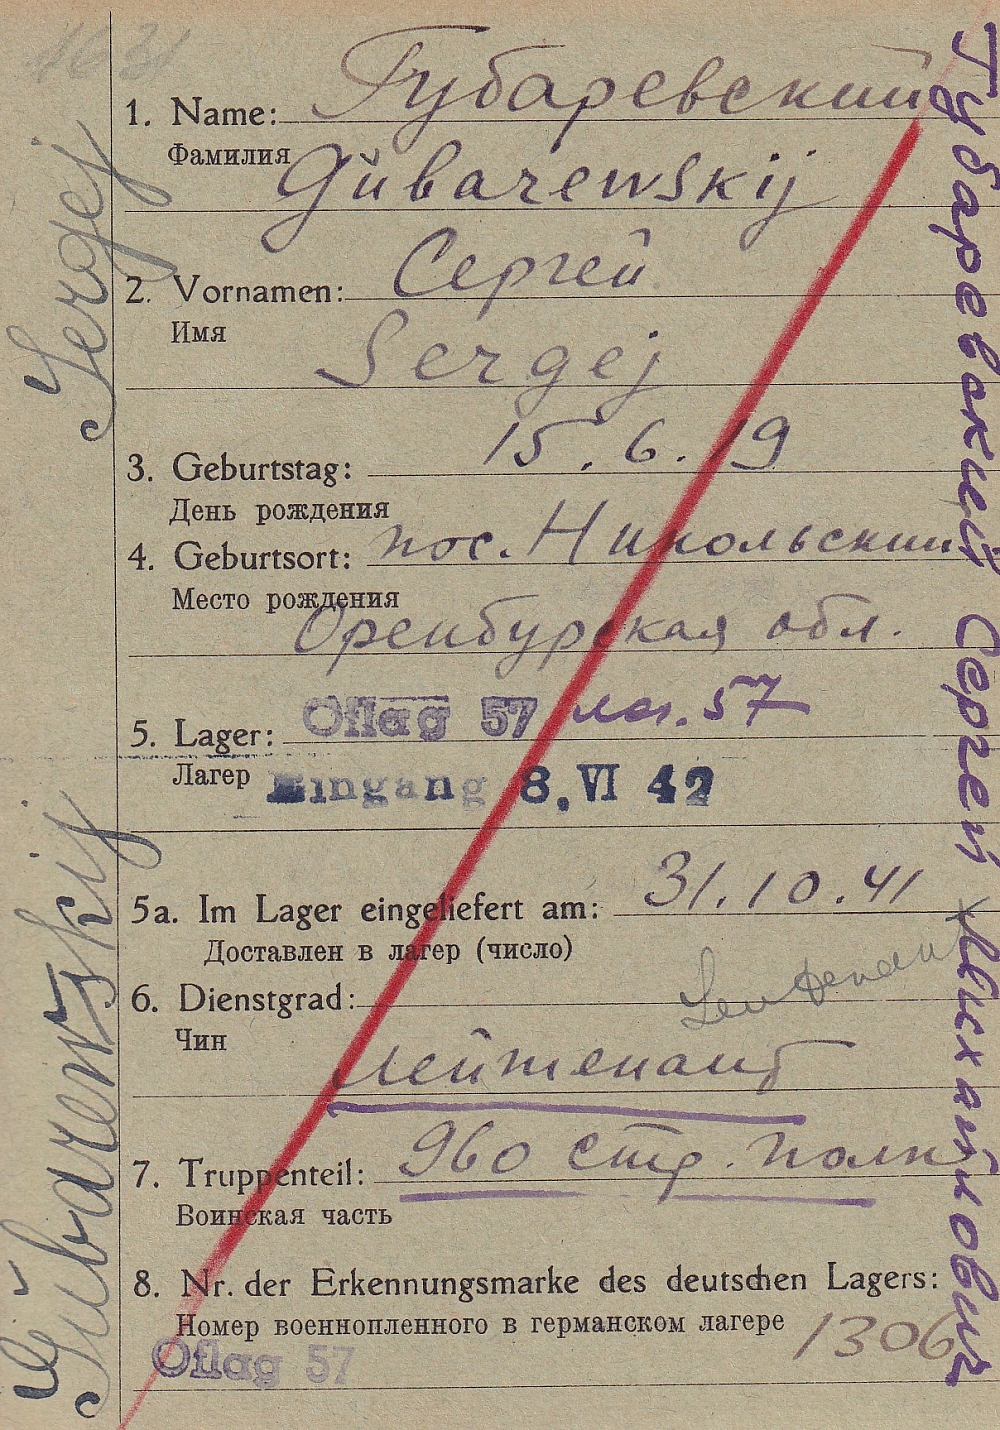 1. Name: Губаревский
Фамилия
Gŭbarewskij
2. Vornamen: Сергей
Имя
Sergej
3. Geburtstag: 15.6.19
День рождения
4. Geburtsort: пос. Никольский
Место рождения
Оренбургская обл.
5. Lager: Oflag 57 лаг. 57
Лагер Eingang 8. VI 42
5a. Im Lager eingeliefert am: 31.10.41
Доставлен в лагер (число)
6. Dienstgrad: Leutenant
Чин
лейтенант
7. Truppenteil: 960 стр. полк
Воинская часть
8. Nr. der Erkennungsmarke des deutschen Lagers:
Номер военнопленного в германском лагере 1306
Oflag 57
Gŭbarewskij Sergej
Губаревский Сергей Михайлович